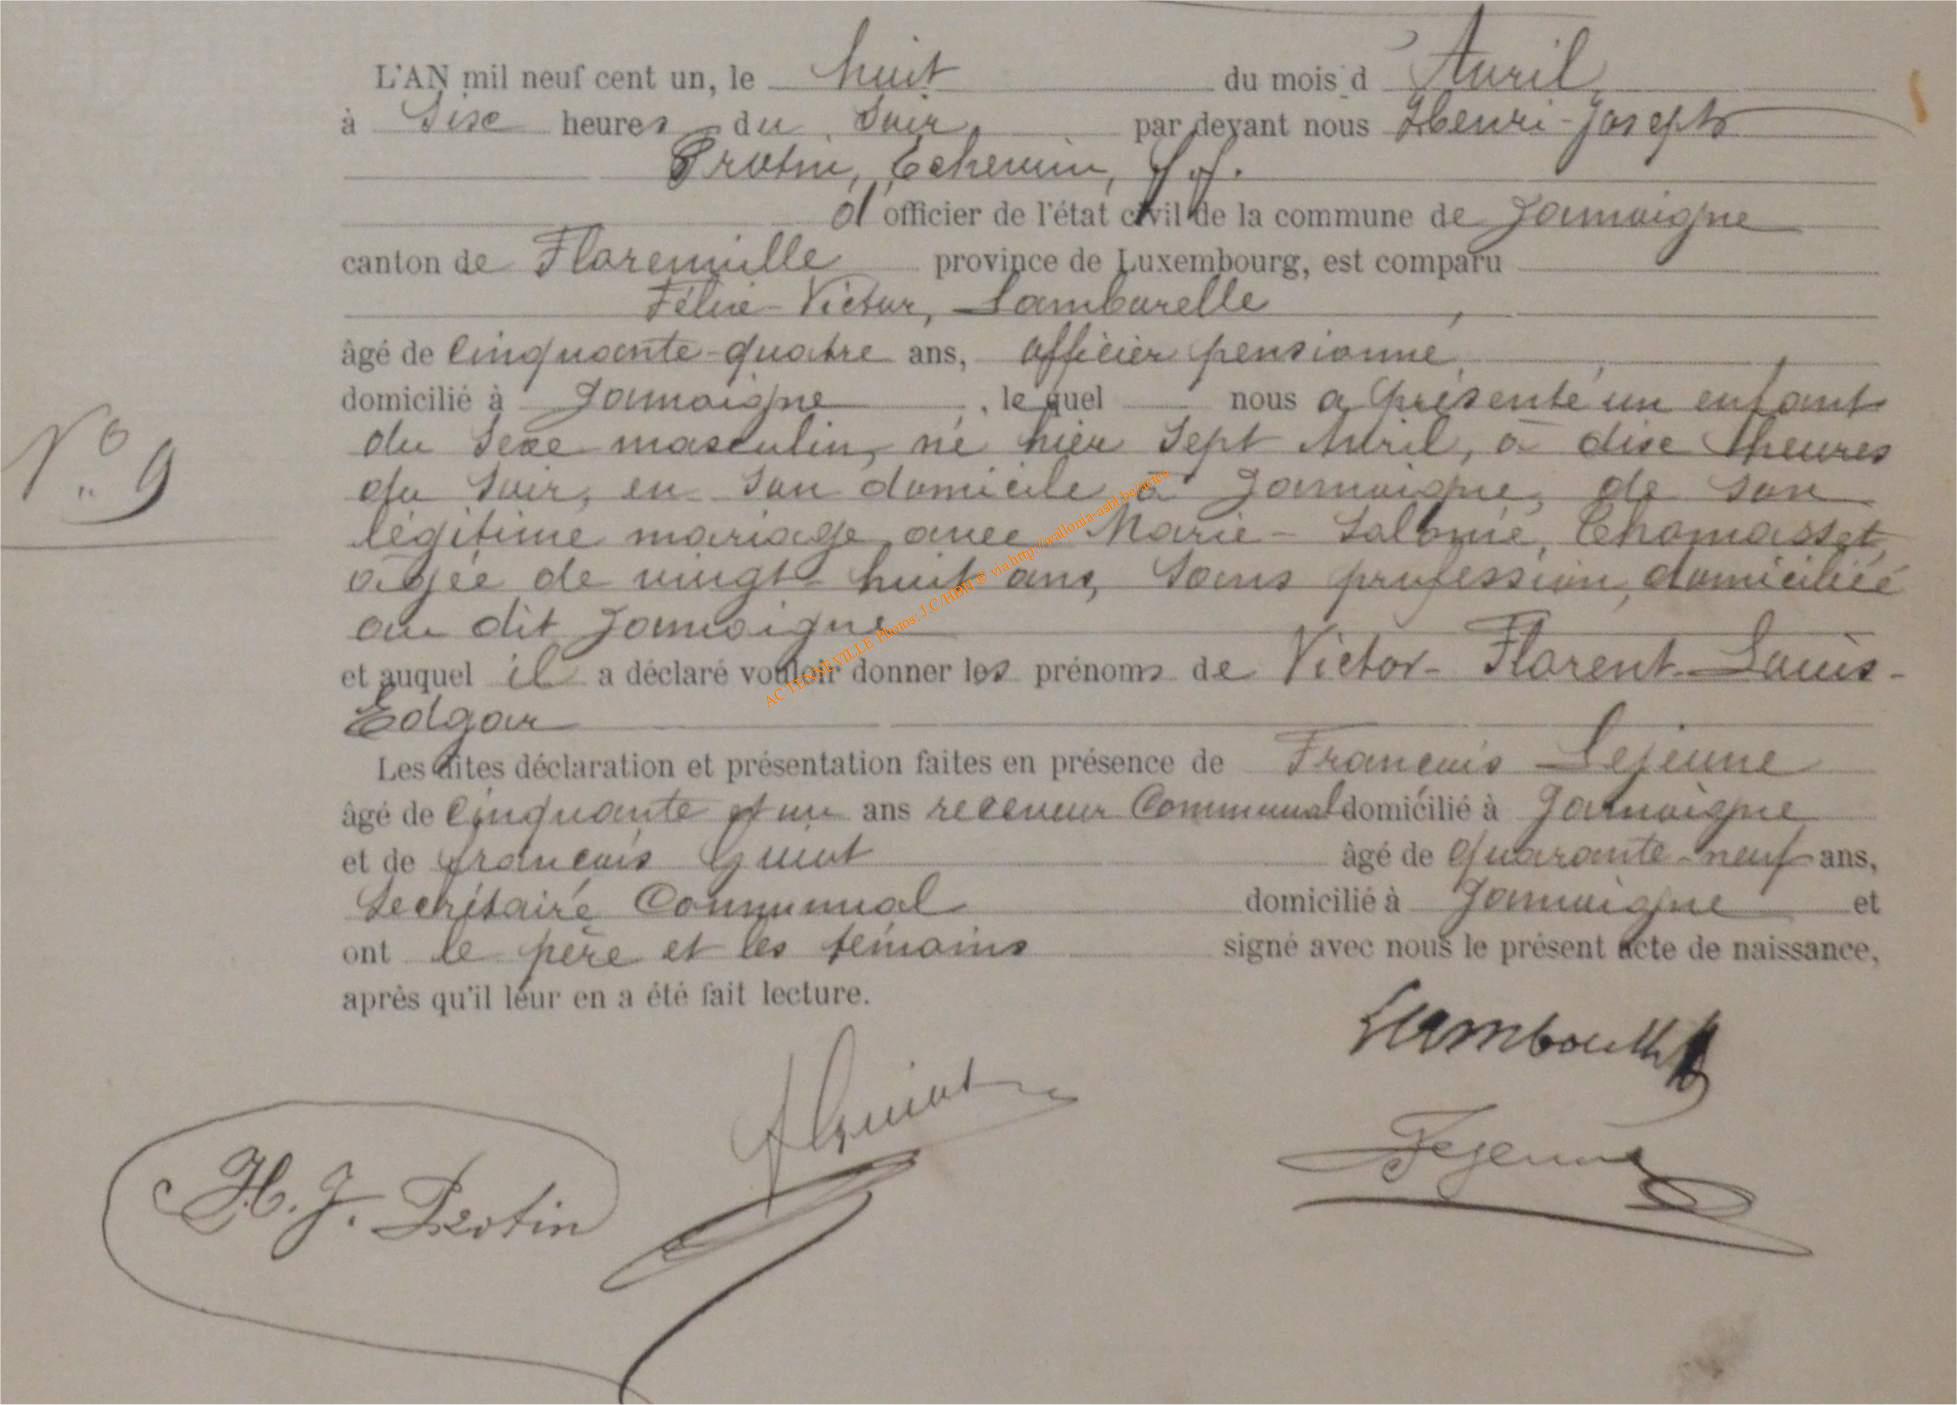 L'AN mil neuf cent un, le huit du mois d Avril
à Six heures du Soir, par devant nous Henri-Joseph
Protin, Echevin, f.f.
d'officier de l'état civil de la commune de Jamoigne
canton de Florenville province de Luxembourg, est comparu
Félix-Victor, Lamborelle
âgé de cinquante-quatre ans, officier pensionné,
domicilié à Jamoigne, lequel nous a présenté un enfant
du Sexe masculin, né hier Sept Avril, à dix heures
du Soir, en Son domicile à Jamoigne, de Son
légitime mariage avec Marie-Salomé, Thomasset,
agée de vingt-huit ans, Sans profession, domiciliée
au dit Jamoigne
et auquel il a déclaré vouloir donner les prénoms de Victor-Florent-Louis-
Edgar
Les dites déclaration et présentation faites en présence de François Lejeune
âgé de cinquante et un ans receveur Communal domicilié à Jamoigne
et de françois Guiot âgé de quarante-neuf ans,
Secrétaire Communal domicilié à Jamoigne et
ont le père et les témoins signé avec nous le présent acte de naissance,
après qu'il leur en a été fait lecture.
N° 9
Lejeune
H. J. Protin